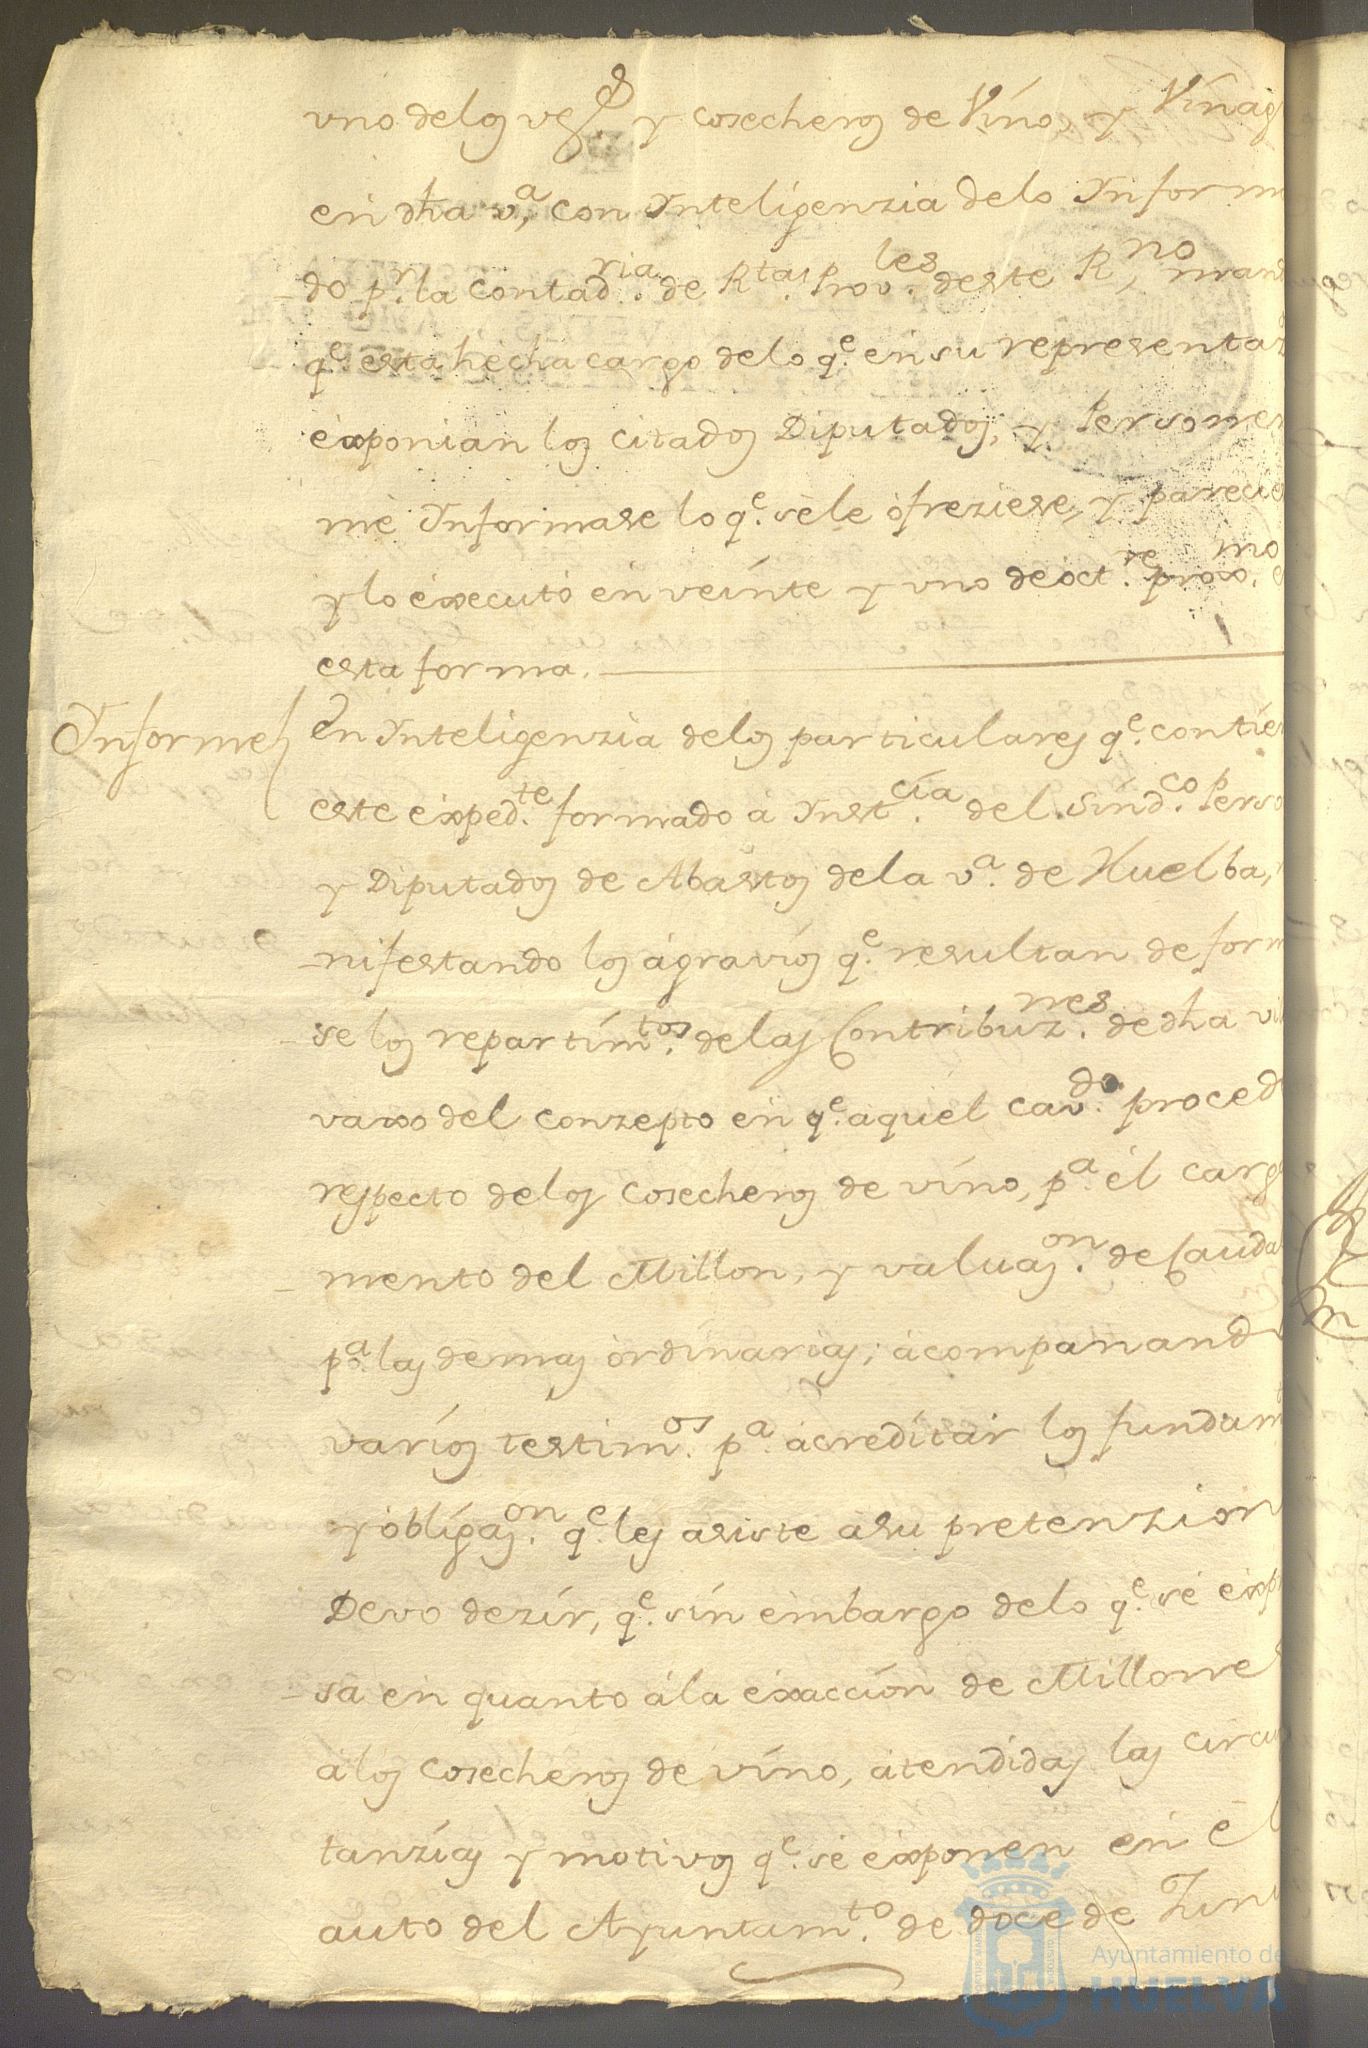 uno delos vez.s y cosecheros de Vino, y Vinag
en dha v.a, con Inteligenzia delo Inform
do p.r la Contad.ria de R.tas Prov.les deste R.no, mand
q.e esta hecha cargo delo q.e en su representaz
exponian los citados Diputados, y Persone
me Informase lo q.e sele ofreziese, y parecie
y lo executó en veinte y uno de oct.re proxo.mo e
esta forma.
Informe
En Inteligenzia delos particulares q.e contie
este exped.te formado a Inst.cia del Sind.co Perso
y Diputados de Abastos dela v.a de Huelba,
nifestando los agravios q.e resultan de form
se los repartim.tos delas Contribuz.nes de dha vi
vaxo del conzepto en q.e aquel cav.do proced
respecto delos cosecheros de vino, p.a el carg
mento del Millon, y valuaz.on de Cauda
p.a las demas ordinarias; acompanand
varios testim.os p.a acreditar los fundam
y obligaz.on q.e les asiste asu pretenzion
Devo dezir, q.e sin embargo delo q.e se exp
sa en quanto ala exaccion de Millones
alos cosecheros de vino, atendidas las circu
tanzias y motivos q.e se exponen en el
auto del Ayuntam.to de doce de Jun
Ayuntamiento de
HUELVA